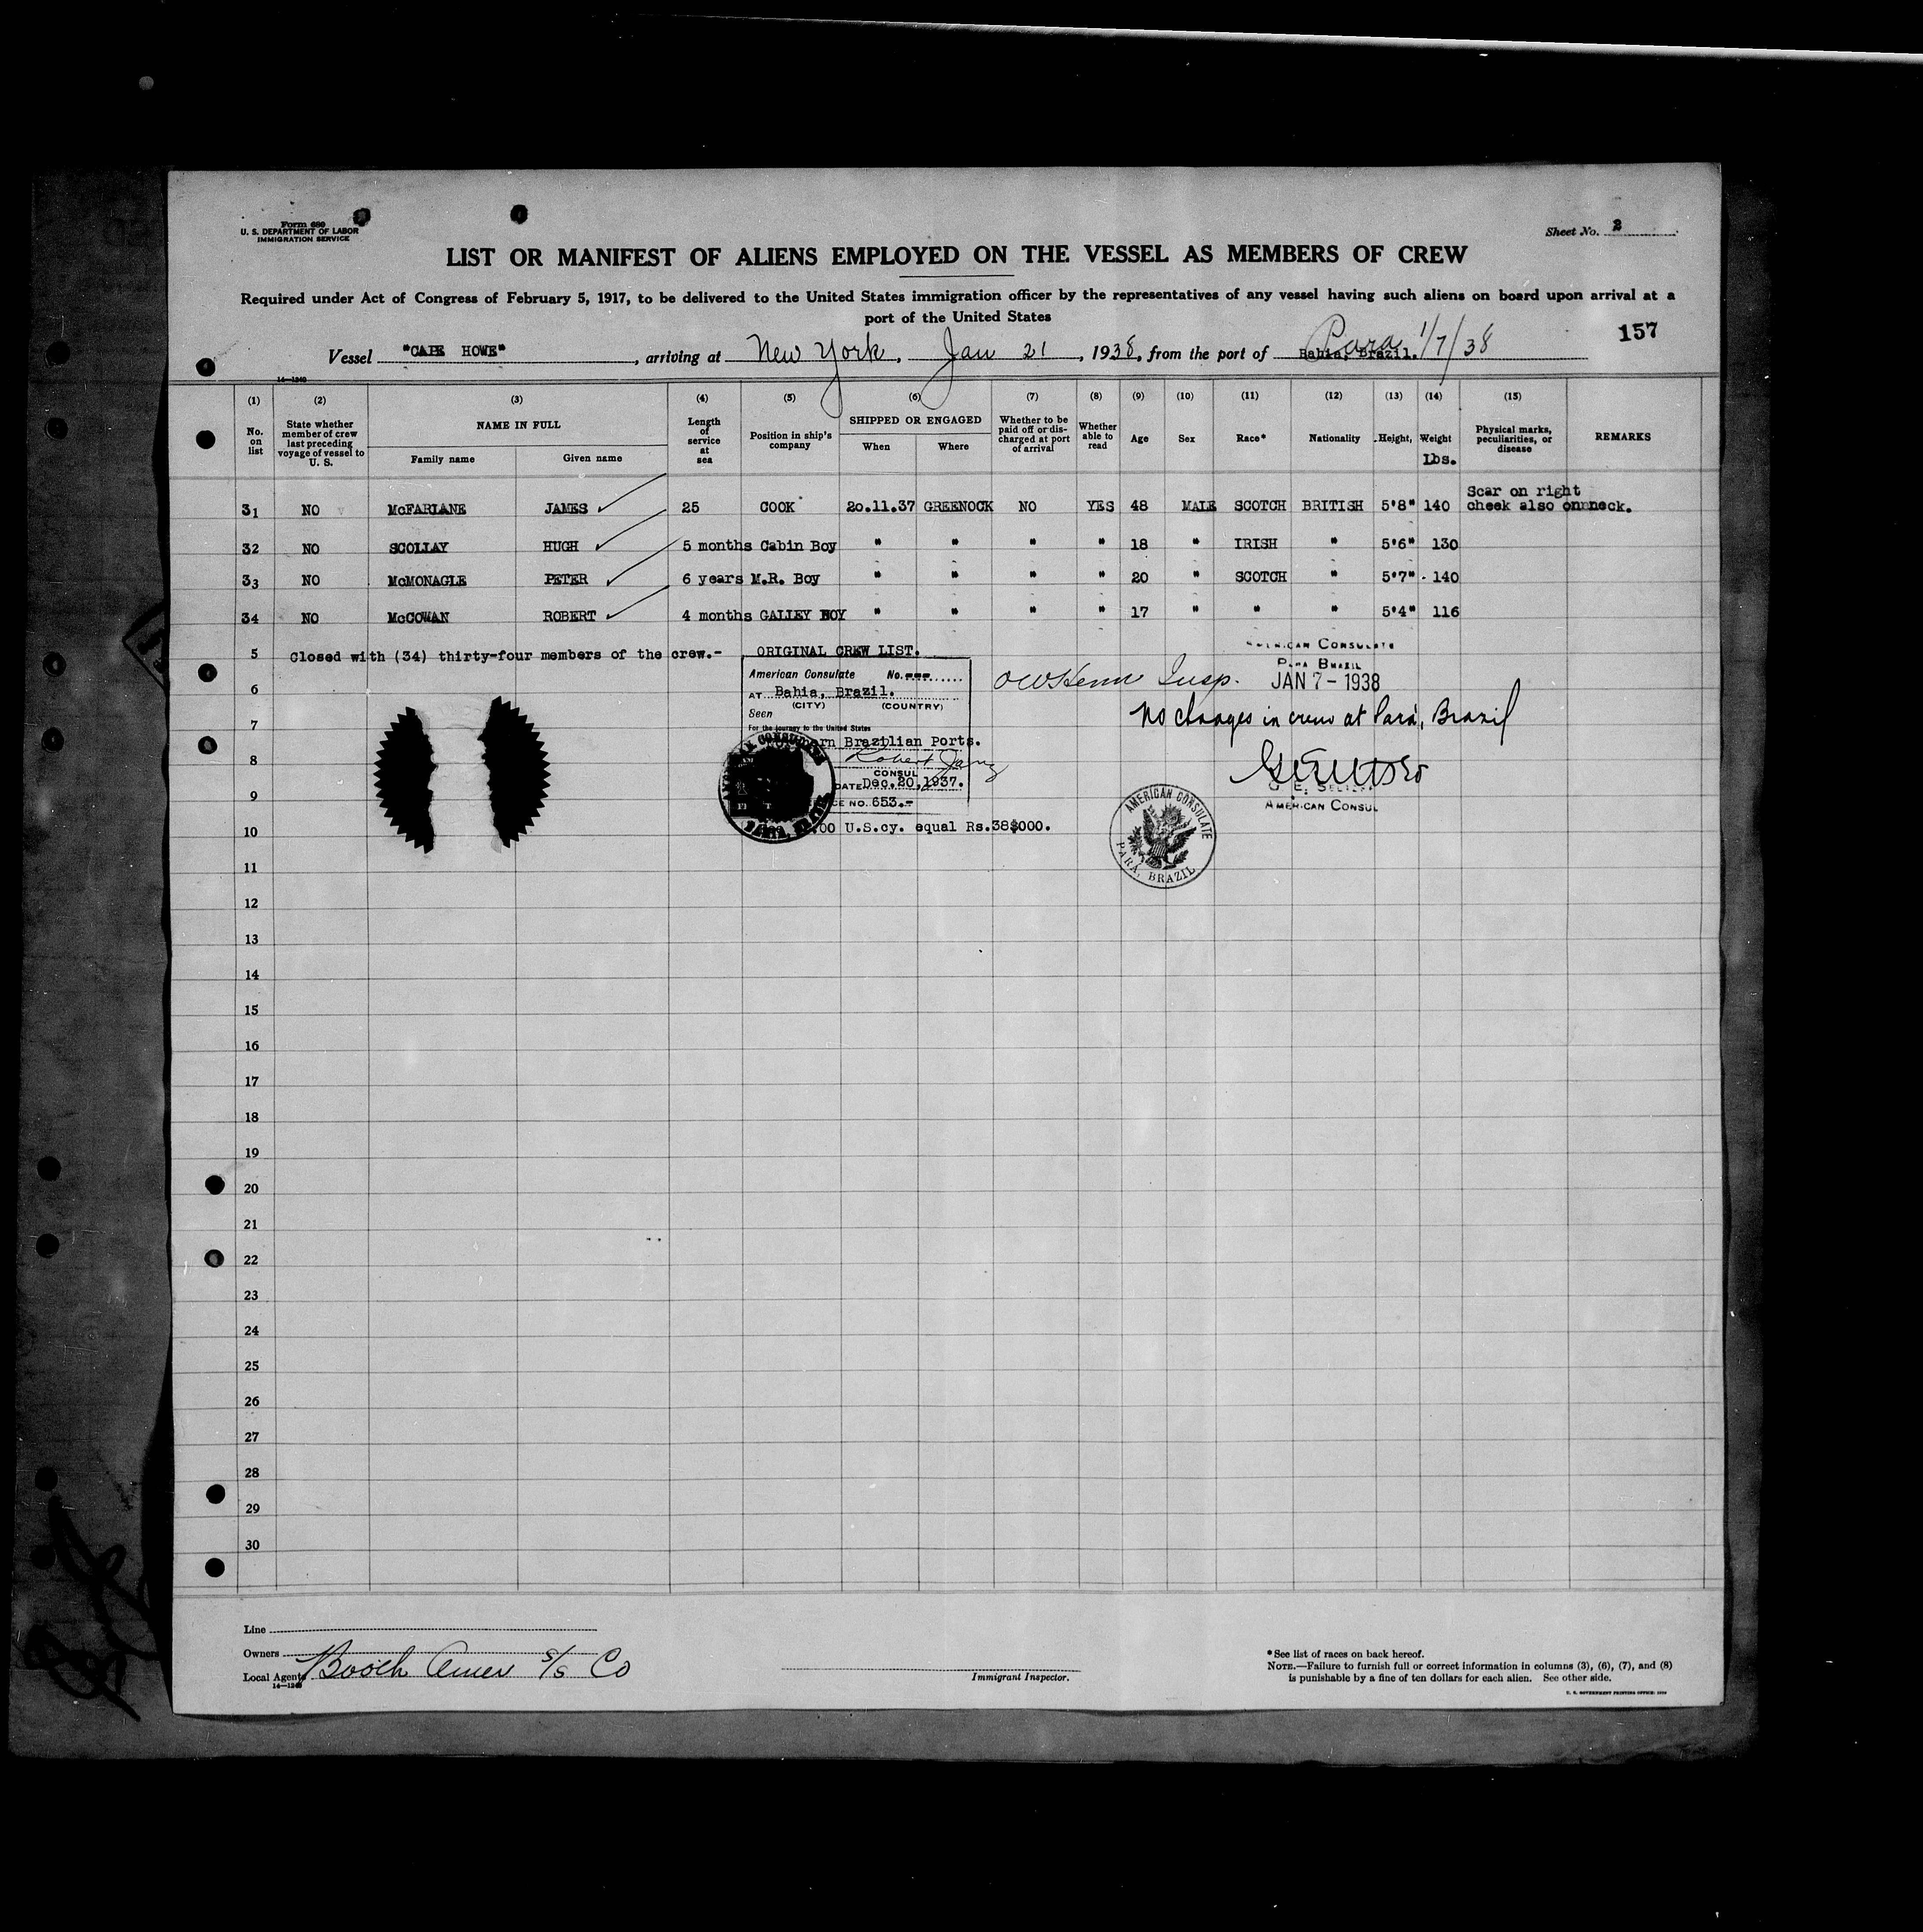 Form 680
U. S. DEPARTMENT OF LABOR
IMMIGRATION SERVICE
Sheet No. 2
LIST OR MANIFEST OF ALIENS EMPLOYED ON THE VESSEL AS MEMBERS OF CREW
Required under Act of Congress of February 5, 1917, to be delivered to the United States immigration officer by the representatives of any vessel having such aliens on board upon arrival at a
port of the United States
157
Vessel "CAPE HOWE", arriving at New York, Jan 21, 1938, from the port of Bahia, Brazil. Para 1/7/38
14—1240
(1) (2) (3) (4) (5) (6) (7) (8) (9) (10) (11) (12) (13) (14) (15)
No. on list
State whether member of crew last preceding voyage of vessel to U. S.
NAME IN FULL
Family name Given name
Length of service at sea
Position in ship's company
SHIPPED OR ENGAGED
When Where
Whether to be paid off or discharged at port of arrival
Whether able to read
Age Sex Race* Nationality Height, Weight lbs.
Physical marks, peculiarities, or disease
REMARKS
31 NO McFARLANE JAMES 25 COOK 20.11.37 GREENOCK NO YES 48 MALE SCOTCH BRITISH 5'8" 140 Scar on right cheek also on neck.
32 NO SCOLLAY HUGH 5 months Cabin Boy " " " " 18 " IRISH " 5'6" 130
33 NO McMONAGLE PETER 6 years M.R. Boy " " " " 20 " SCOTCH " 5'7" 140
34 NO McCOWAN ROBERT 4 months GALLEY BOY " " " " 17 " " " 5'4" 116
5 Closed with (34) thirty-four members of the crew.- ORIGINAL CREW LIST.
American Consulate No.
AT Bahia, Brazil.
(CITY) (COUNTRY)
Seen
For the journey to the United States
Brazilian Ports.
Robert
CONSUL
DATE Dec.20,1937.
NO. 653.-
.00 U.S.cy. equal Rs.38$000.
Insp.
AMERICAN CONSULATE
PARA BRAZIL
JAN 7 - 1938
No changes in crew at Pará, Brazil
AMERICAN CONSUL
AMERICAN CONSULATE
PARÁ, BRAZIL
6
7
8
9
10
11
12
13
14
15
16
17
18
19
20
21
22
23
24
25
26
27
28
29
30
Line
Owners
Local Agents Booth Amer S/S Co
14—1240
Immigrant Inspector.
* See list of races on back hereof.
NOTE.—Failure to furnish full or correct information in columns (3), (6), (7), and (8)
is punishable by a fine of ten dollars for each alien. See other side.